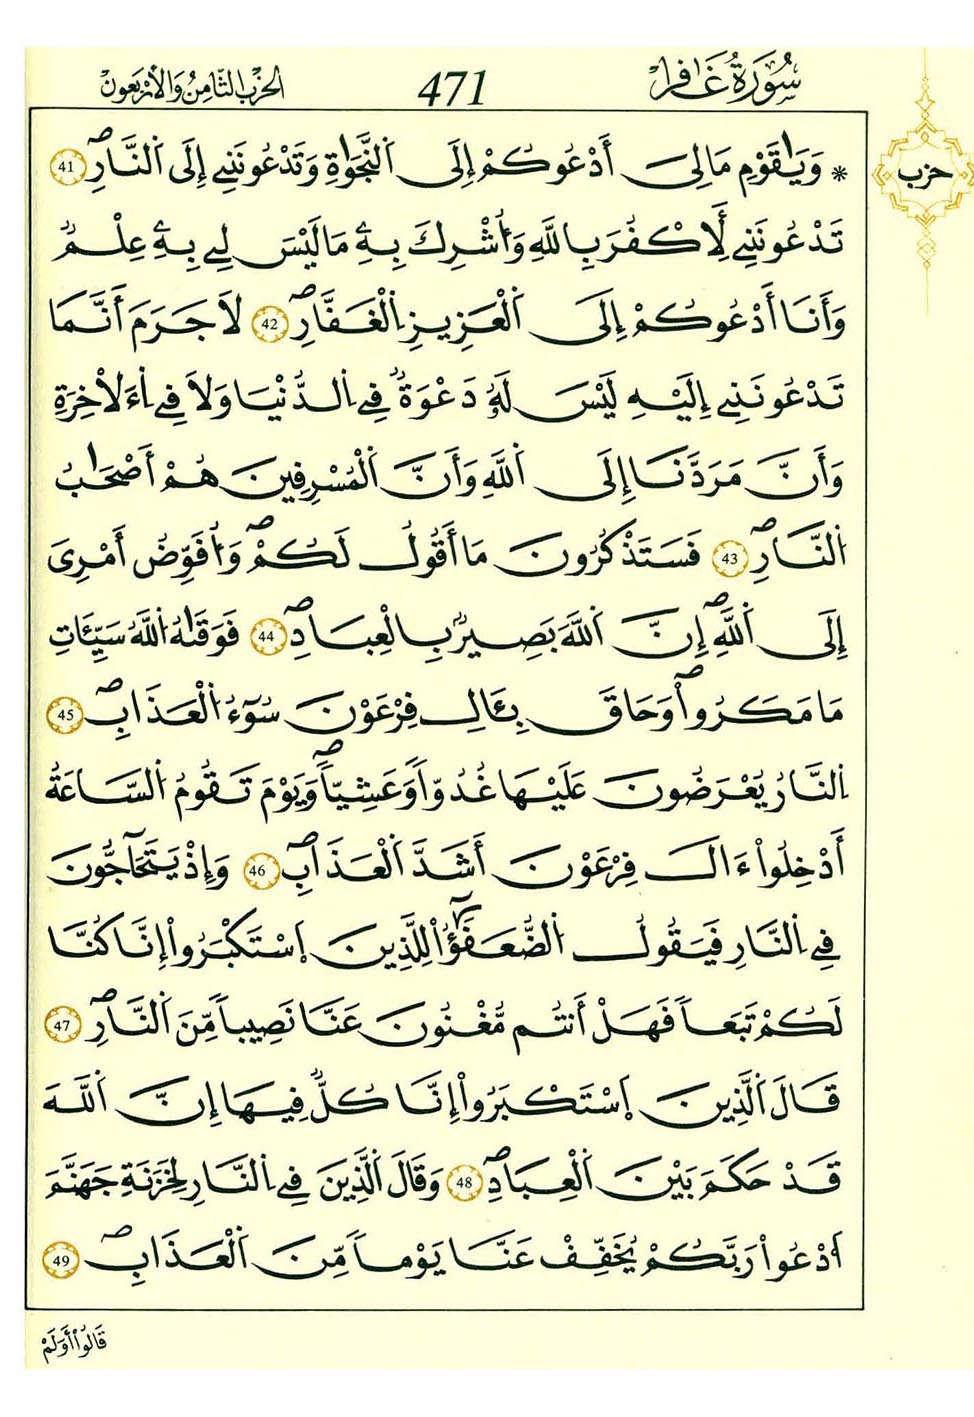 سُورَةُ غَافِر
471
الحِزْبُ الثَّامِنُ وَالأَرْبَعُونَ
حزب
* وَيَٰقَوْمِ مَا لِىَ أَدْعُوكُمْ إِلَى اَلنَّجَوٰةِ وَتَدْعُونَنِے إِلَى اَلنّ۪ارِۖ 41
تَدْعُونَنِے لِأَكْفُرَ بِاللَّهِ وَأُشْرِكَ بِهِۦ مَا لَيْسَ لِے بِهِۦ عِلْمٌ
وَأَنَا أَدْعُوكُمْ إِلَى اَلْعَزِيزِ اِلْغَفَّارِۖ 42 لَا جَرَمَ أَنَّمَا
تَدْعُونَنِے إِلَيْهِ لَيْسَ لَهُۥ دَعْوَةٌ فِے اِلدُّنْيَا وَلَا فِے اِءَلَاخِرَةِ
وَأَنَّ مَرَدَّنَا إِلَى اَللَّهِ وَأَنَّ اَلْمُسْرِفِينَ هُمْ أَصْحَٰبُ
اُلنَّارِۖ 43 فَسَتَذْكُرُونَ مَا أَقُولُ لَكُمْۖ وَأُفَوِّضُ أَمْرِىَ
إِلَى اَللَّهِۖ إِنَّ اَللَّهَ بَصِيرُۢ بِالْعِبَادِۖ 44 فَوَقَىٰهُ اُللَّهُ سَيِّـَٔاتِ
مَا مَكَرُواْۖ وَحَاقَ بِـَٔالِ فِرْعَوْنَ سُوٓءُ اُلْعَذَابِۖ 45
اِلنَّارُ يُعْرَضُونَ عَلَيْهَا غُدُوّاً وَعَشِيّاًۖ وَيَوْمَ تَقُومُ اُلسَّاعَةُ
أَدْخِلُواْ ءَالَ فِرْعَوْنَ أَشَدَّ اَلْعَذَابِۖ 46 وَإِذْ يَتَحَآجُّونَ
فِے اِلنَّارِ فَيَقُولُ اُلضُّعَفَٰٓؤُاْ لِلَّذِينَ اَسْتَكْبَرُواْ إِنَّا كُنَّا
لَكُمْ تَبَعاً فَهَلْ أَنتُم مُّغْنُونَ عَنَّا نَصِيباً مِّنَ اَلنّ۪ارِۖ 47
قَالَ اَلذِينَ اَسْتَكْبَرُواْ إِنَّا كُلٌّ فِيهَا إِنَّ اَللَّهَ
قَدْ حَكَمَ بَيْنَ اَلْعِبَادِۖ 48 وَقَالَ اَلذِينَ فِے اِلنَّارِ لِخَزَنَةِ جَهَنَّمَ
اَدْعُواْ رَبَّكُمْ يُخَفِّفْ عَنَّا يَوْماً مِّنَ اَلْعَذَابِۖ 49
قَالُواْ أَوَلَمْ